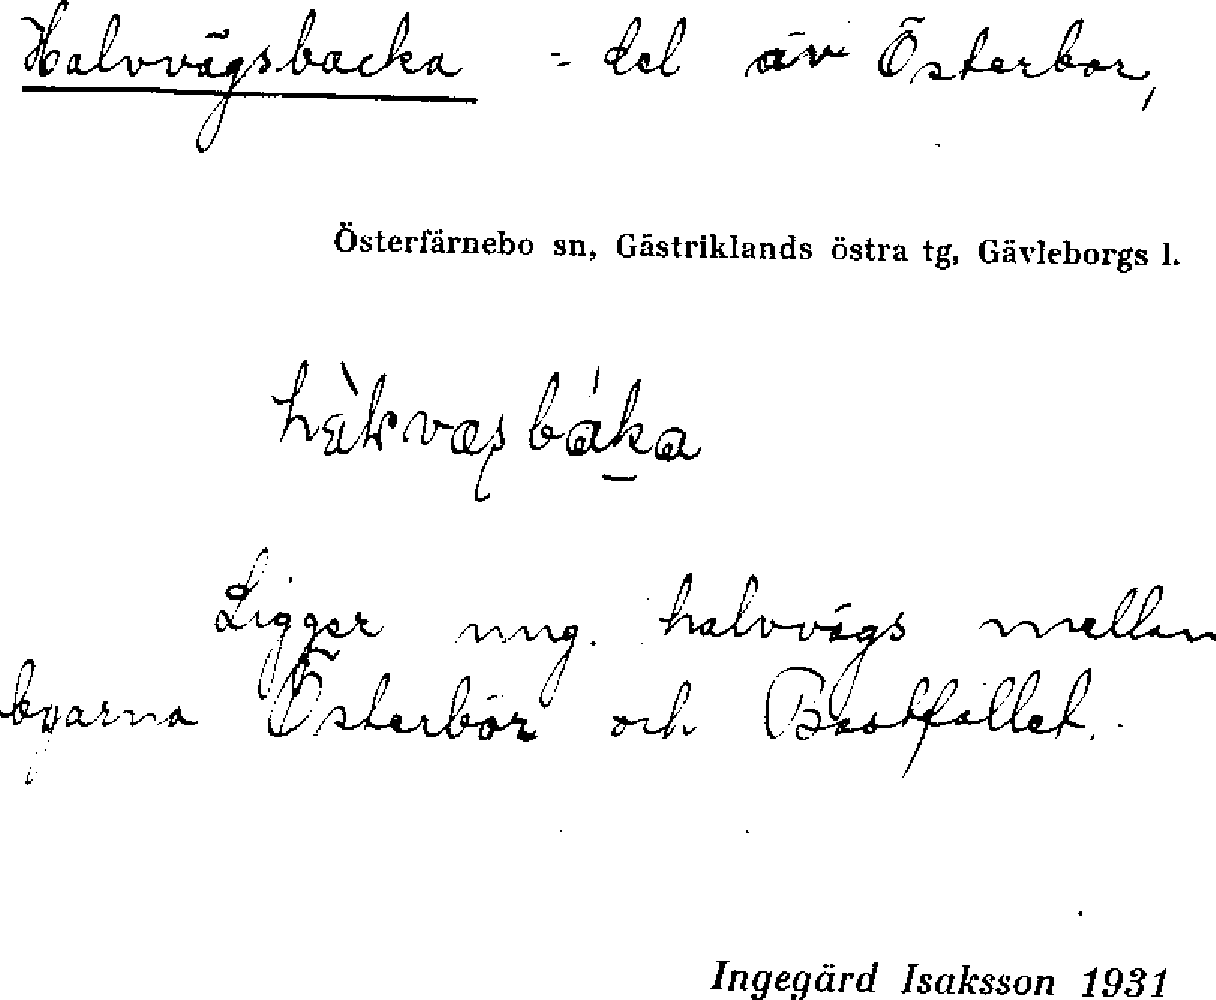 Halvvägsbacka - del av Österbor,
Österfärnebo sn, Gästriklands östra tg, Gävleborgs l.
Ligger ung. halvvägs mellan
byarna Österbor och Bastfallet.
Ingegärd Isaksson 1931